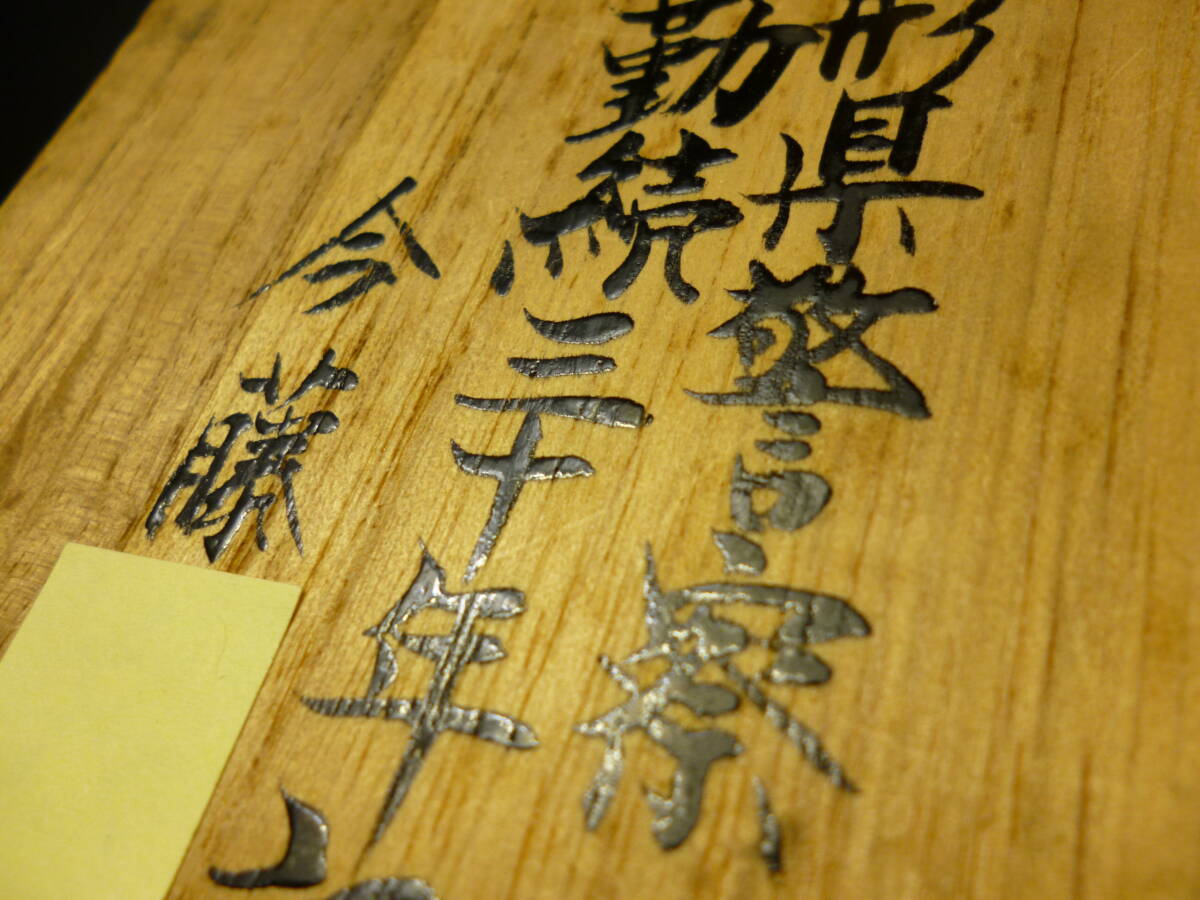 形県警察
勤続三十年
今藤